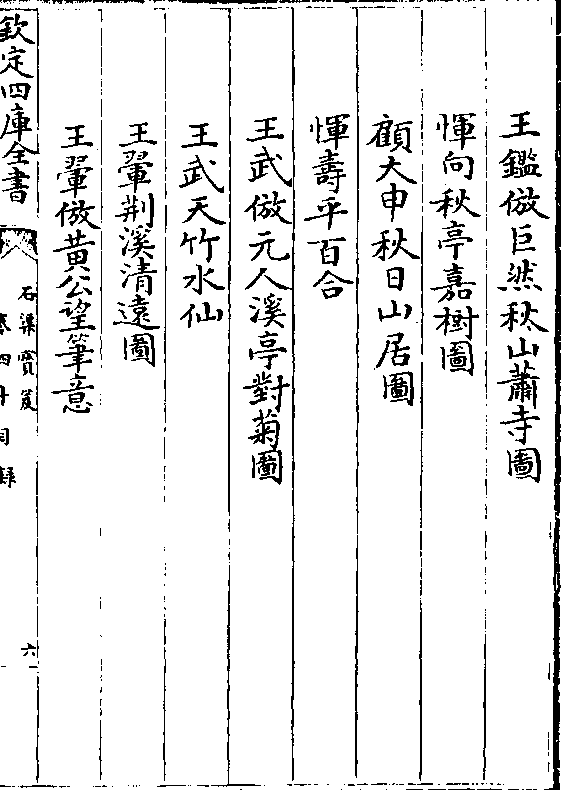 王鑑倣巨然秋山蕭寺圖
惲向秋亭嘉樹圖
顧大申秋日山居圖
惲壽平百合
王武倣元人溪亭對菊圖
王武天竹水仙
王翬荆溪清遠圖
王翬倣黃公望筆意
欽定四庫全書
石渠寳笈
卷四十目録
六